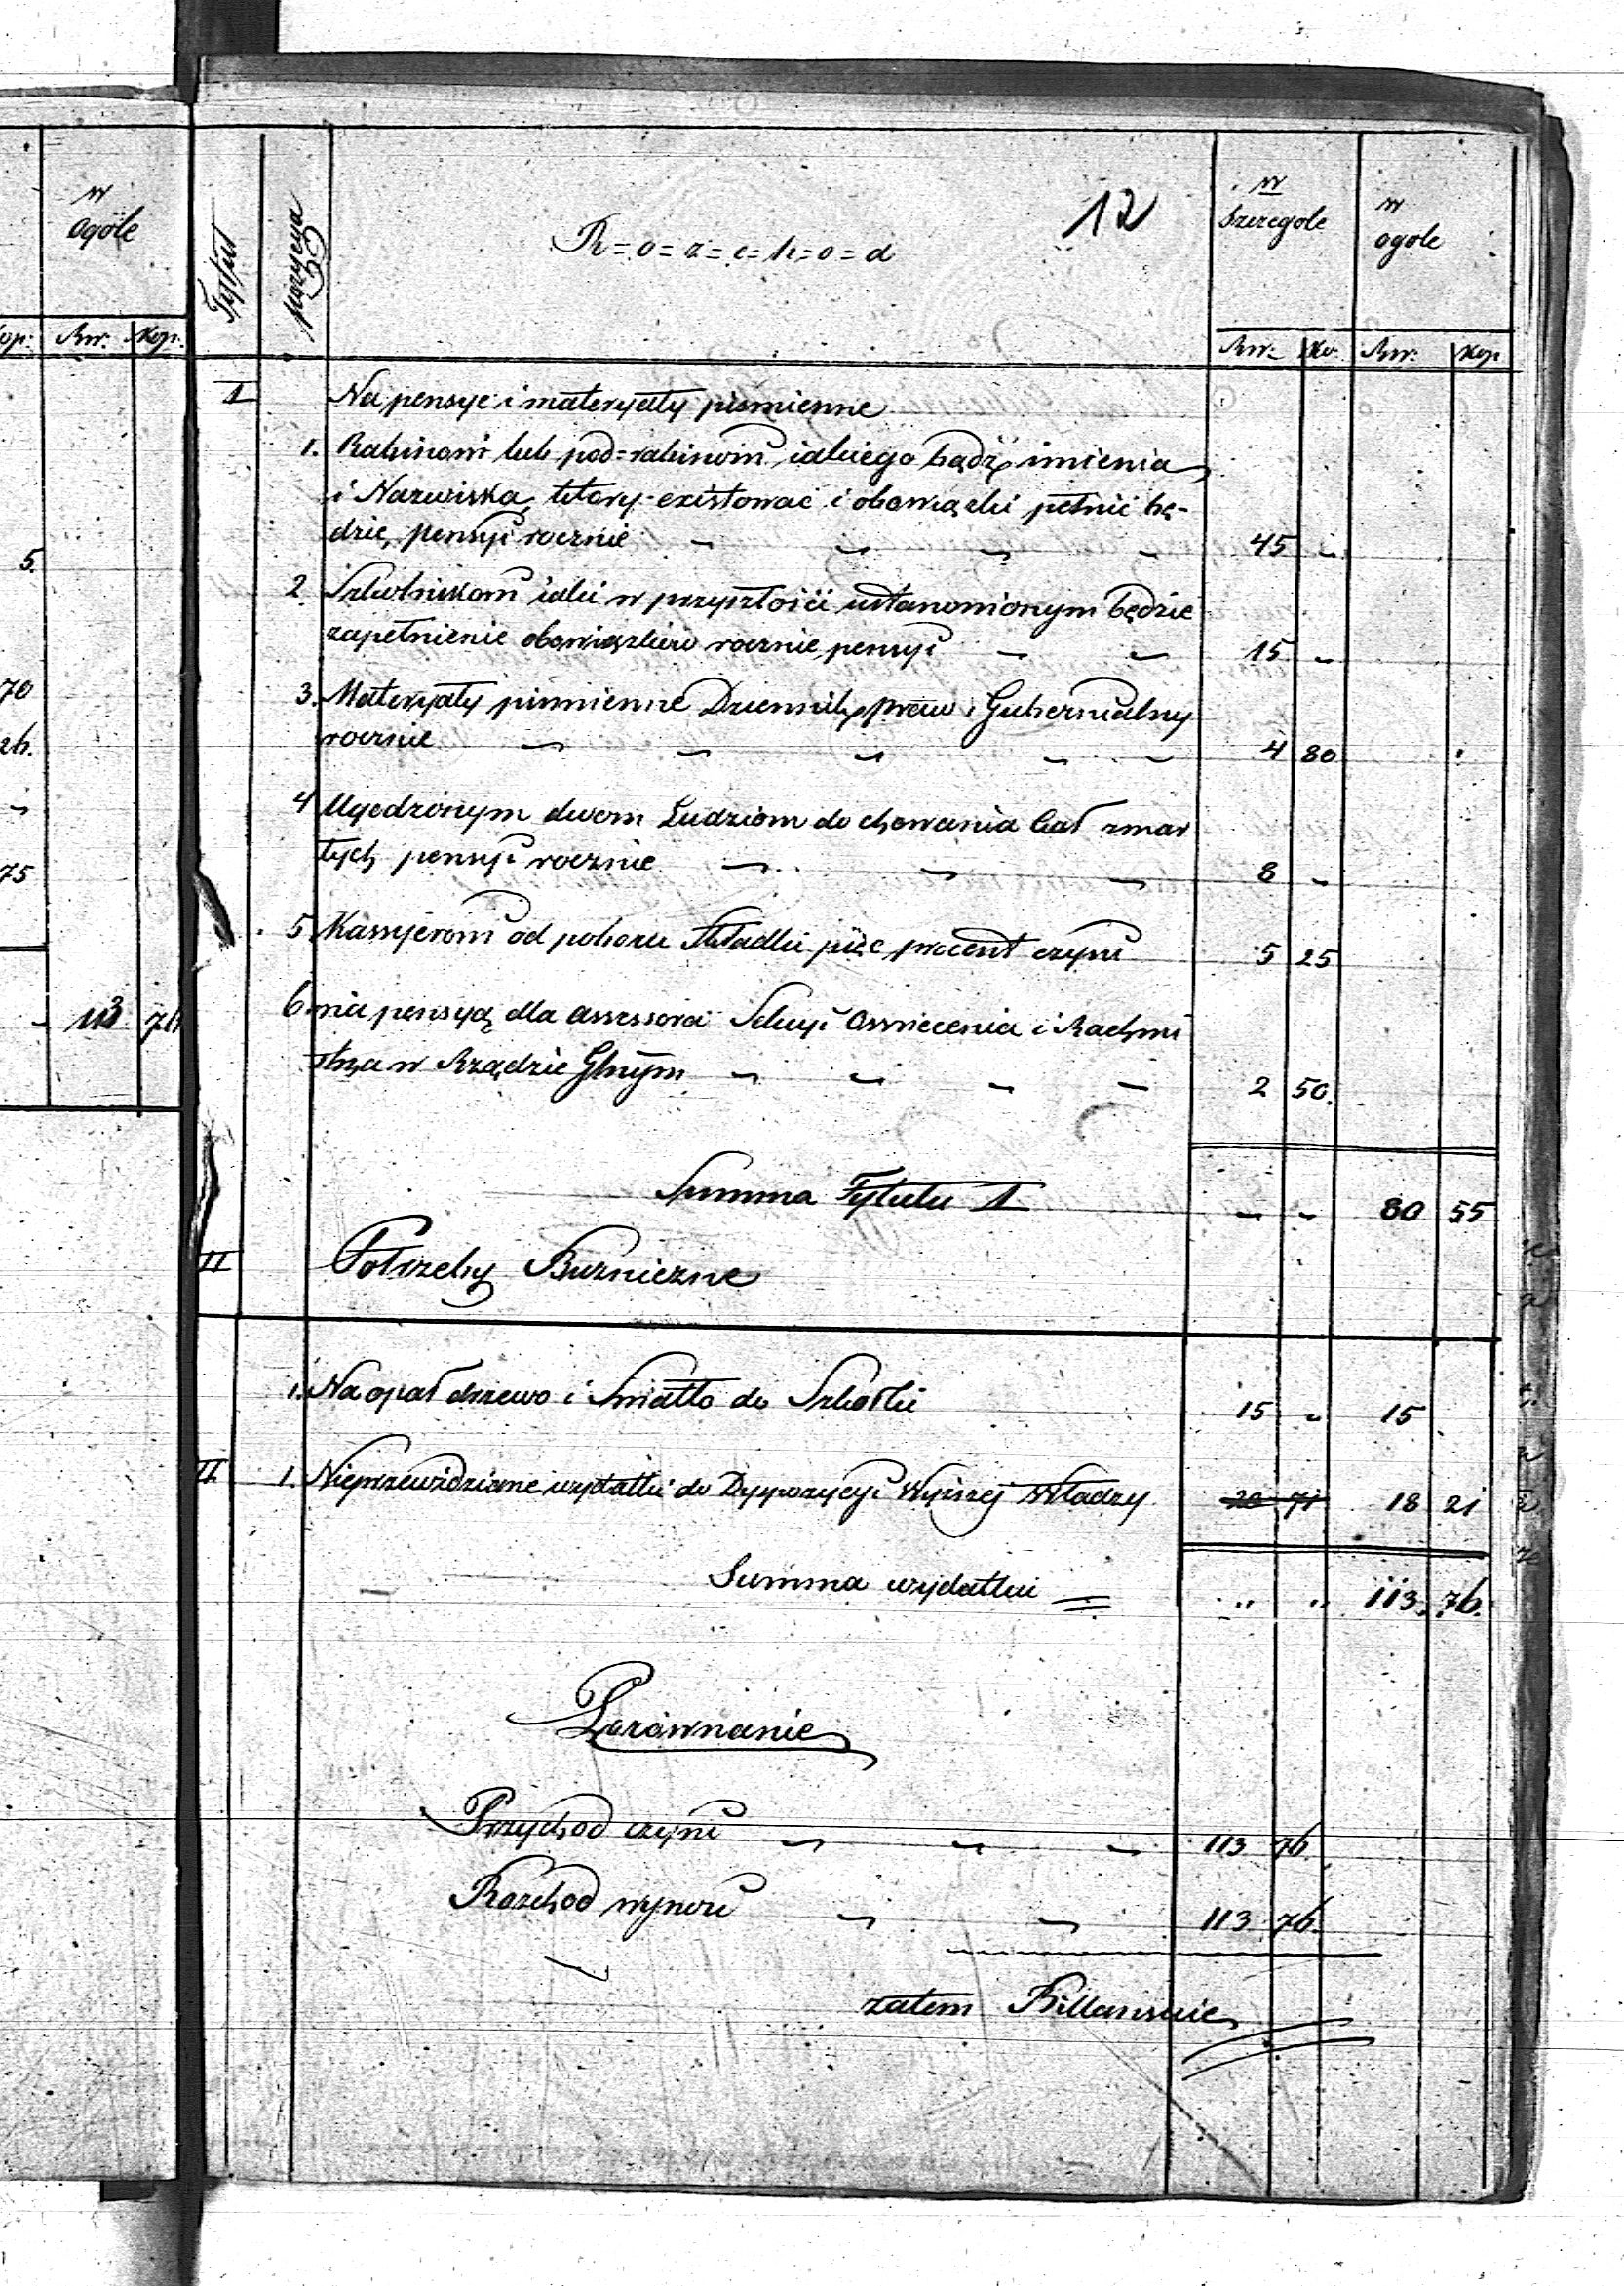 w ogóle
Rsr. Kop.
5.
70
26.
75
113 76
12
Tytuł
pozycya
R=o=z=c=h=o=d
w szczegole
w ogole
Rsr. Ko. Rsr. Kop
I Na pensye i materyały piśmienne
1. Rabinom lub pod=rabinom, iakiego bądź imienia
i Nazwiska, który existować i obowiązki pełnić bę-
dzie, pensyi rocznie 45 "
2 Szkolnikom iaki w przyszłości ustanowionym będzie
zapełnienie obowiązków rocznie pensyi 15 "
3. Materyały pismienne Dziennik praw i Gubernialny
rocznie 4 80
4 Ugodzonym dwom Ludziom do chowania Ciał zmar
łych pensyi rocznie 8 "
5. Kassyerom od poboru Składki pięc procent czyni 5 25
6 na pensyą dla assessora Sekcyi Oswiecenia i Rachmi
strza w Rządzie Głnym 2 50.
Summa Tytułu I " " 80 55
II Potrzeby Bużniczne
1. Na opał drzewo i Swiatło do Szkołki 15 " 15
II. 1. Nieprzewidziane wydatki do Dyspozycyi Wyższej Władzy 20 71 18 21
Summa wydatku " " 113. 76.
Porównanie
Przychod czyni 113 76.
Rozchod wynosi 113 76.
zatem Billansuie